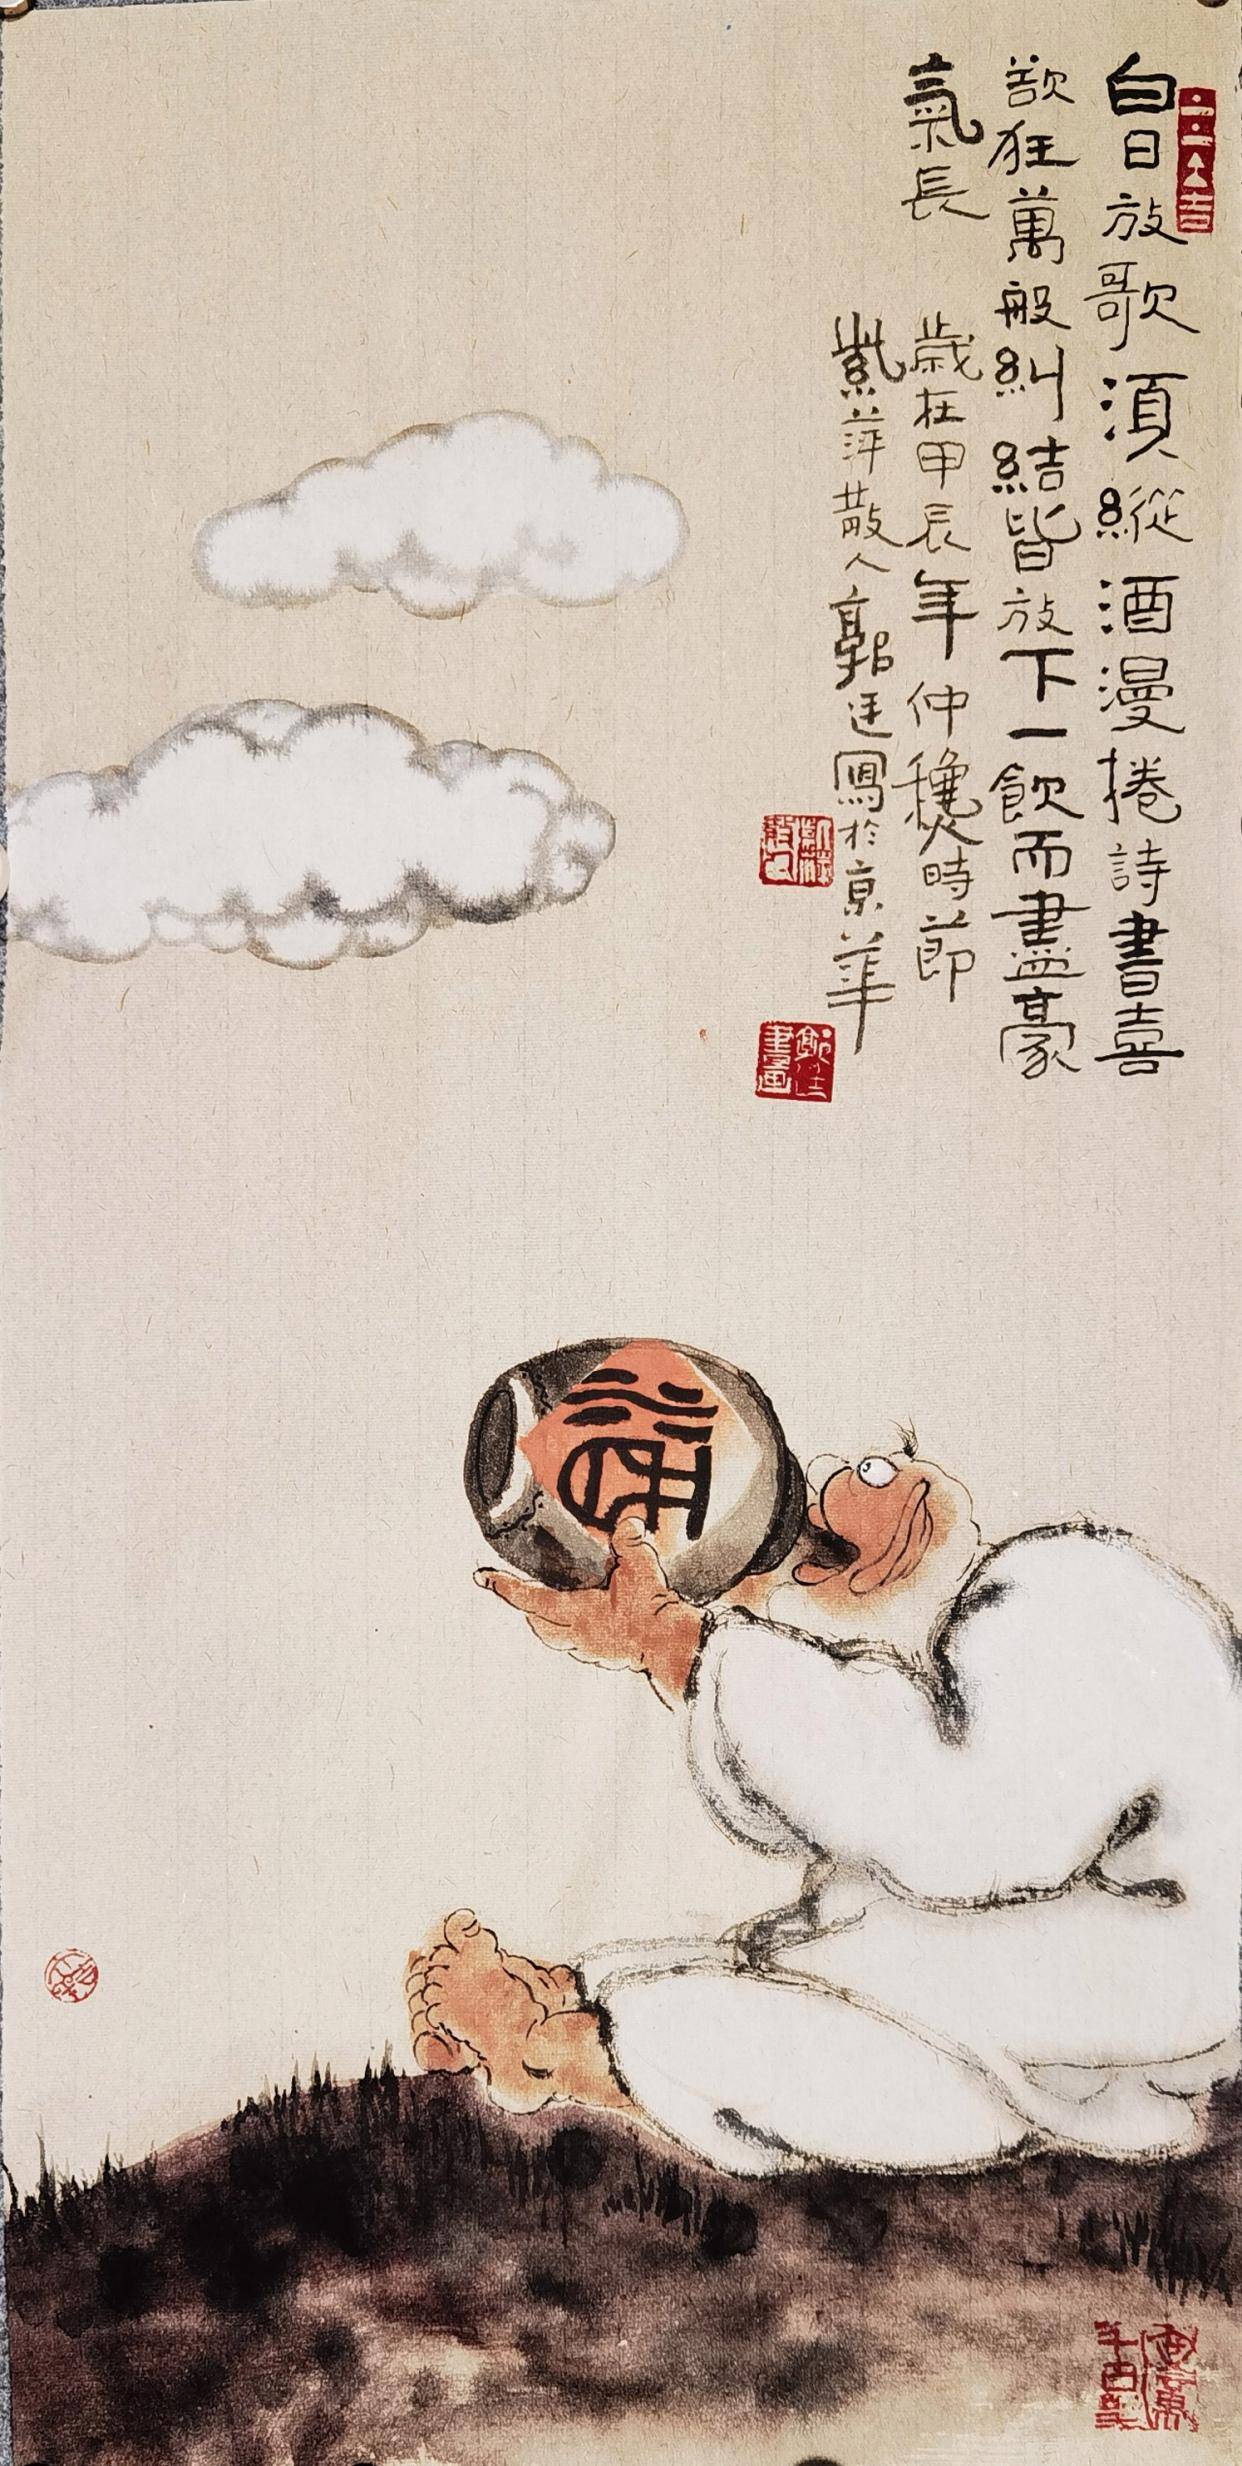 白日放歌須縱酒漫捲詩書喜
欲狂萬般糾結皆放下一飲而盡豪
氣長 歲在甲辰年仲龝時節
紫萍散人郭寫於京華
酒